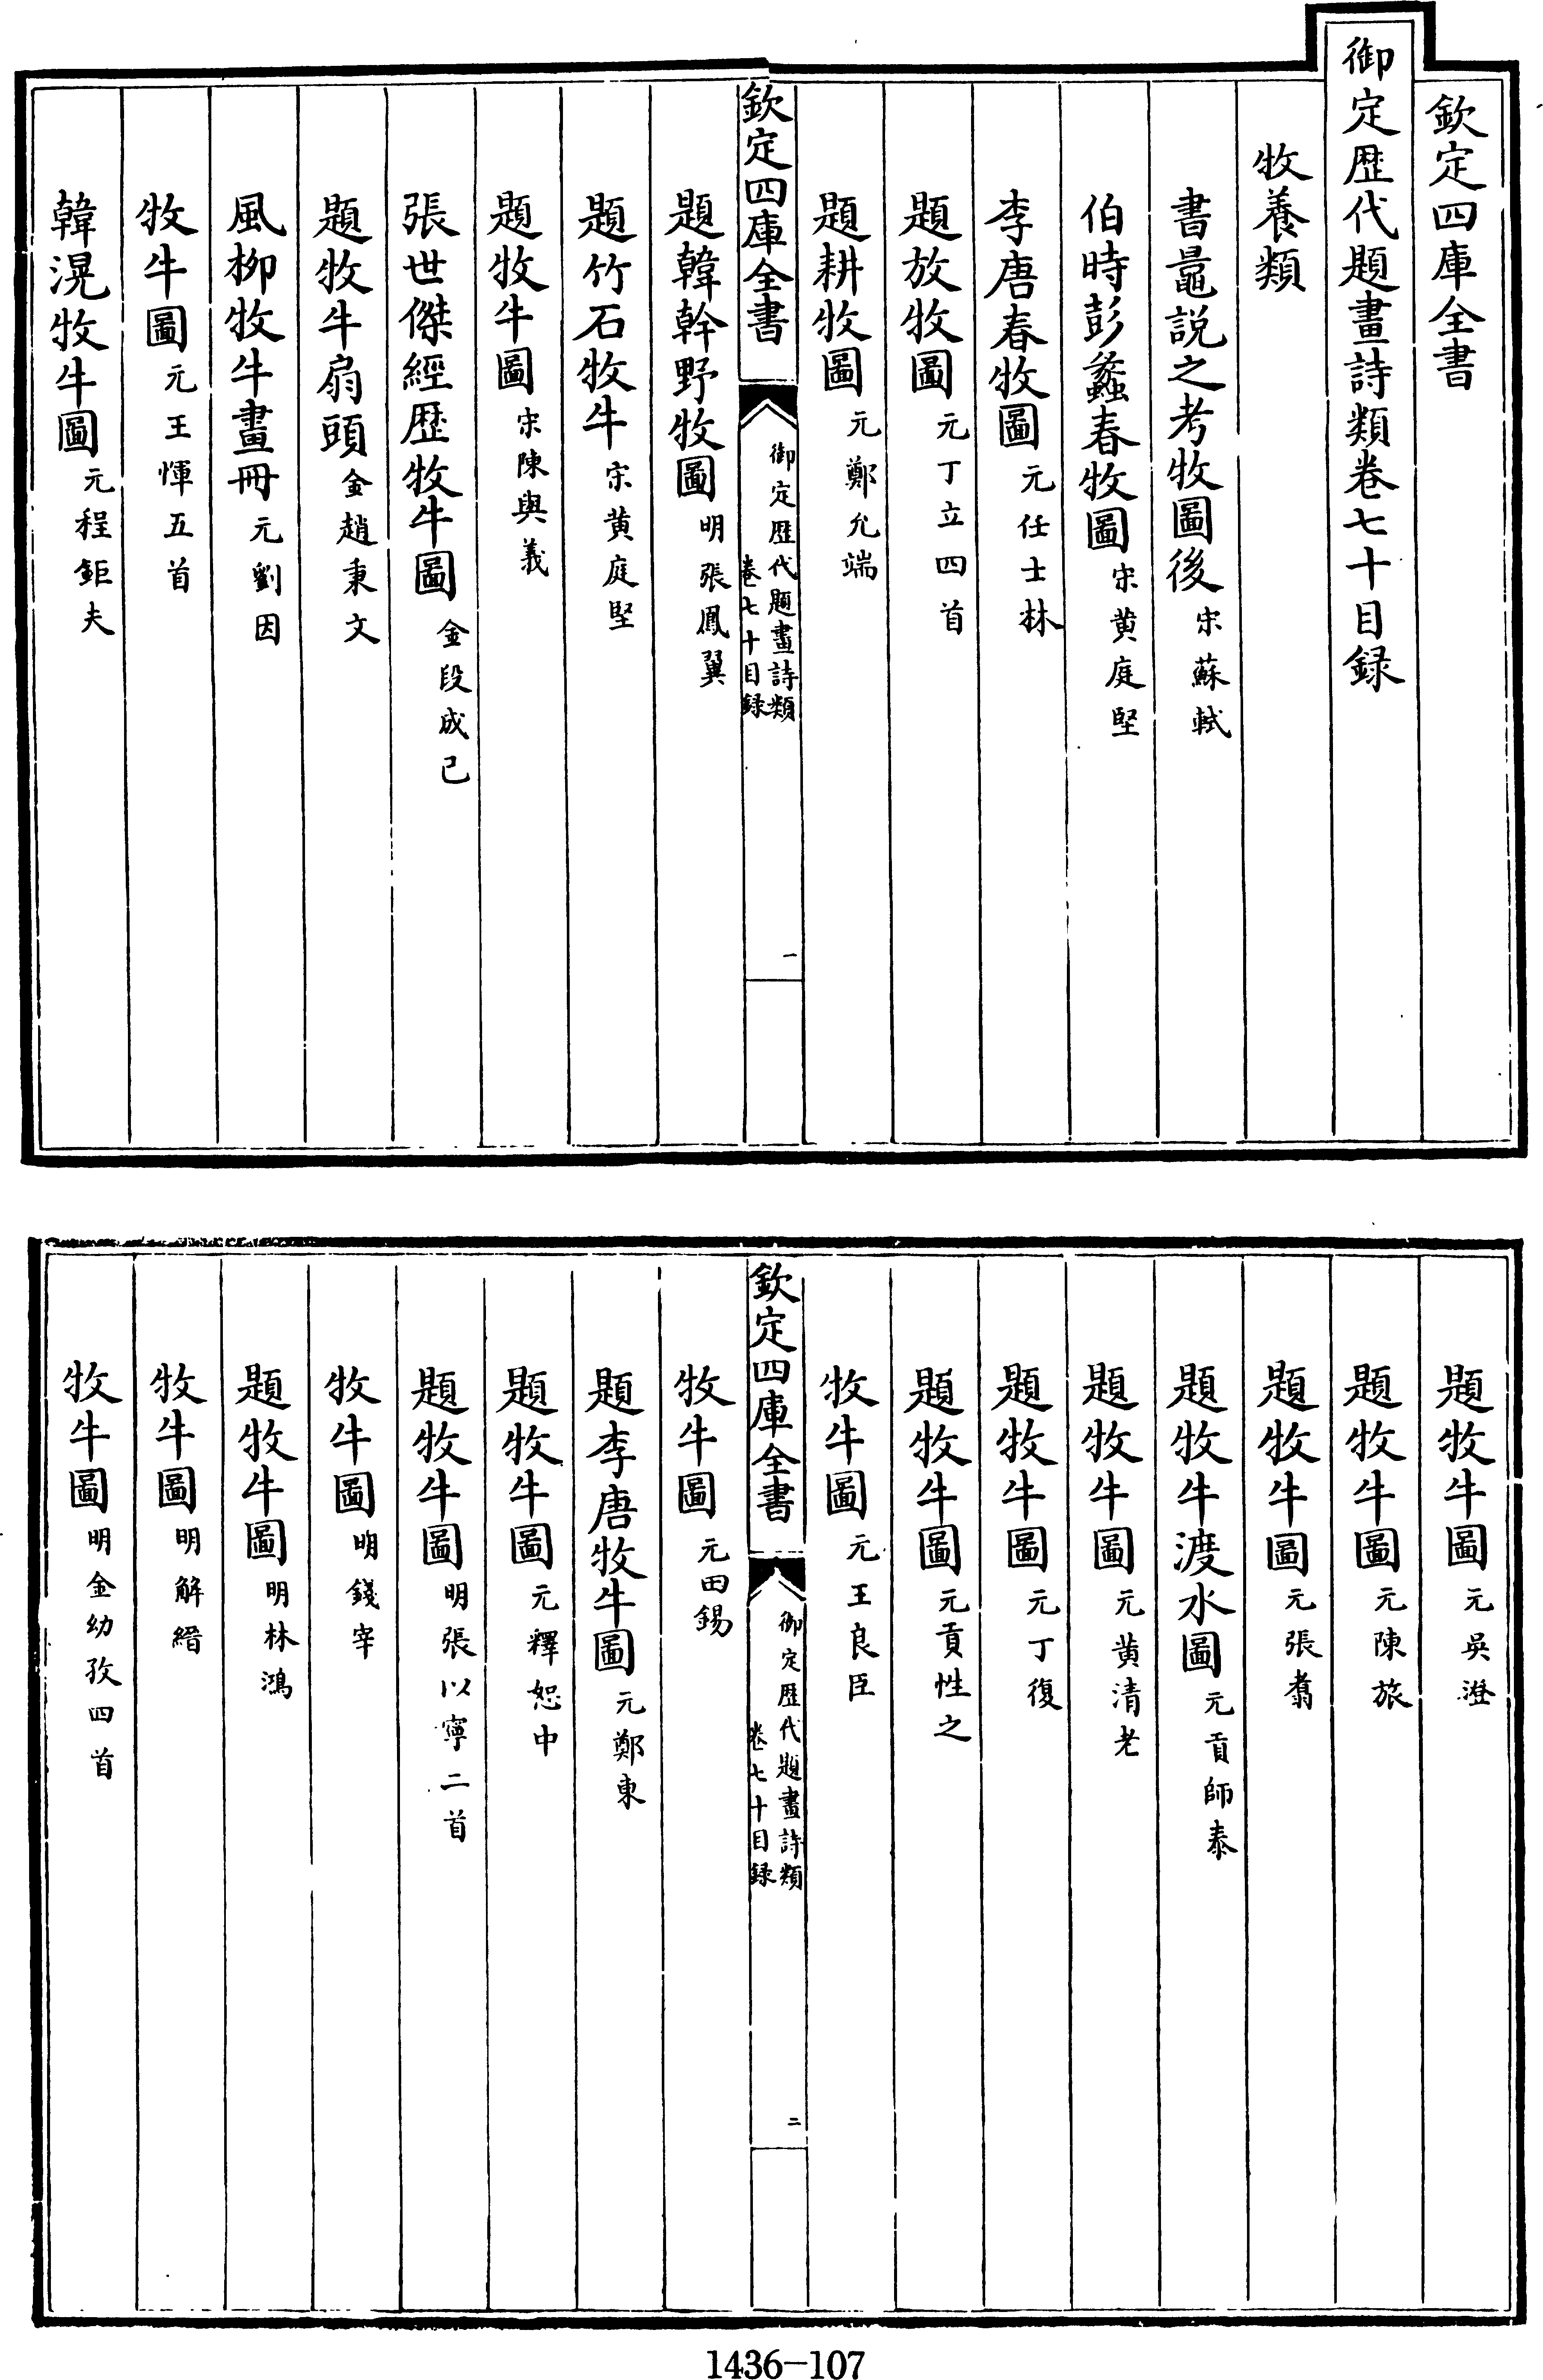 欽定四庫全書
御定歴代題畫詩類卷七十目録
牧養類
書鼂説之考牧圖後 宋蘇軾
伯時彭蠡春牧圖 宋黄庭堅
李唐春牧圖 元任士林
題放牧圖 元丁立四首
題耕牧圖 元鄭允端
欽定四庫全書
御定歴代題畫詩類
卷七十目録
一
題韓幹野牧圖 明張鳳翼
題竹石牧牛 宋黄庭堅
題牧牛圖 宋陳與義
張世傑經歴牧牛圖 金段成己
題牧牛扇頭 金趙秉文
風柳牧牛畫冊 元劉因
牧牛圖 元王惲五首
韓滉牧牛圖 元程鉅夫
題牧牛圖 元吳澄
題牧牛圖 元陳旅
題牧牛圖 元張翥
題牧牛渡水圖 元貢師泰
題牧牛圖 元黄清老
題牧牛圖 元丁復
題牧牛圖 元貢性之
牧牛圖 元王良臣
欽定四庫全書
御定歴代題畫詩類
卷七十目録
二
牧牛圖 元田錫
題李唐牧牛圖 元鄭東
題牧牛圖 元釋恕中
題牧牛圖 明張以寧二首
牧牛圖 明錢宰
題牧牛圖 明林鴻
牧牛圖 明解縉
牧牛圖 明金幼孜四首
1436-107